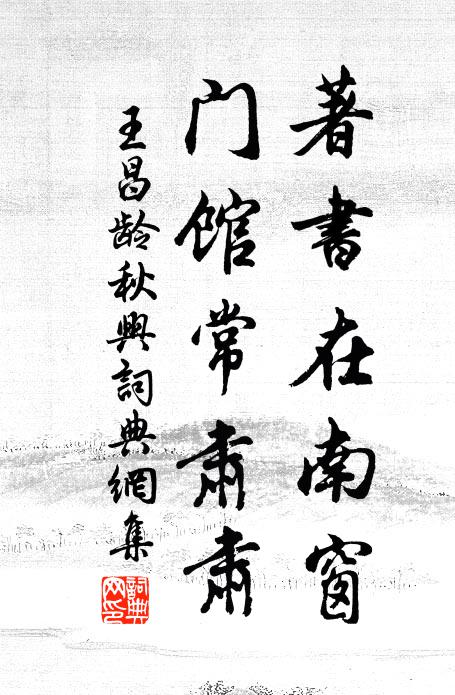 著書在南窗
门馆常肅肅
王昌龄秋興詞典網集
詞典